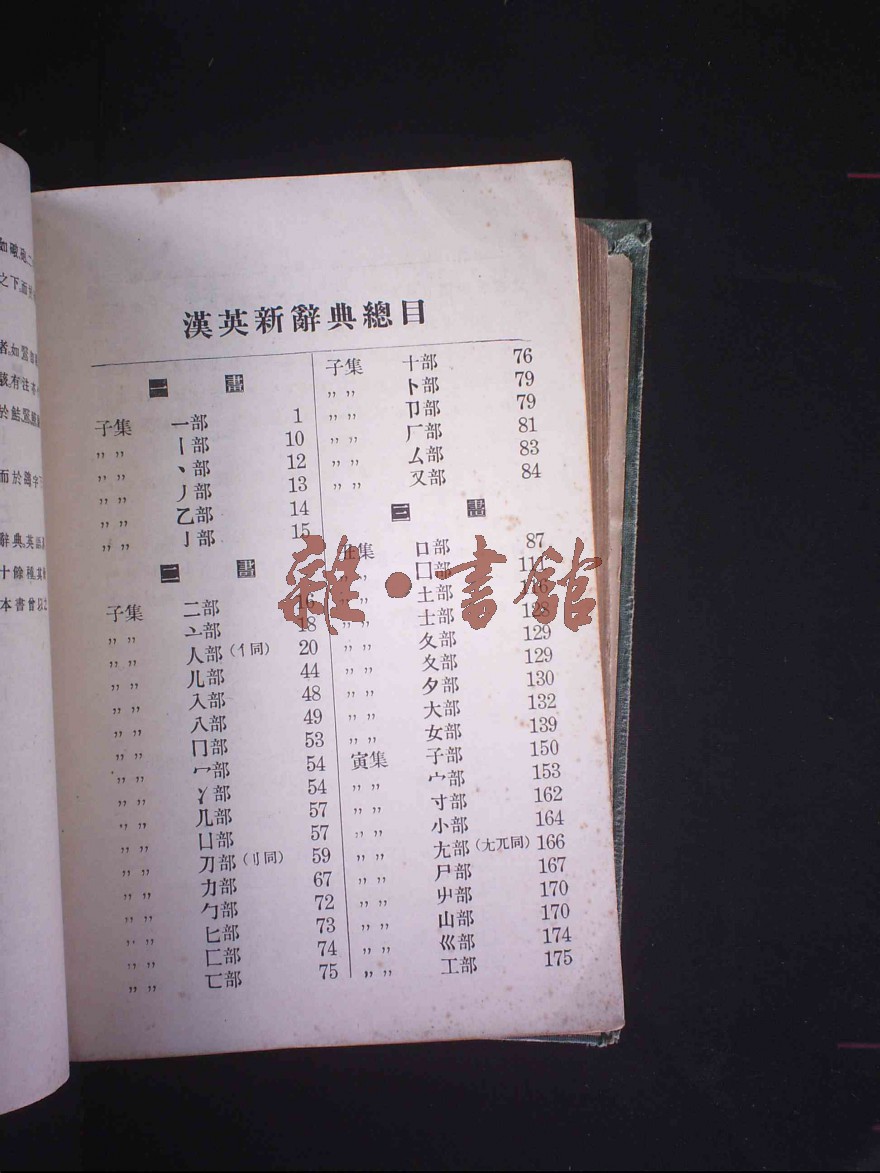 漢英新辭典總目
一畫
子集 一部 1
〃 〃 丨部 10
〃 〃 丶部 12
〃 〃 丿部 13
〃 〃 乙部 14
〃 〃 亅部 15
二畫
子集 二部 16
〃 〃 亠部 18
〃 〃 人部(亻同) 20
〃 〃 儿部 44
〃 〃 入部 48
〃 〃 八部 49
〃 〃 冂部 53
〃 〃 冖部 54
〃 〃 冫部 54
〃 〃 几部 57
〃 〃 凵部 57
〃 〃 刀部(刂同) 59
〃 〃 力部 67
〃 〃 勹部 72
〃 〃 匕部 73
〃 〃 匚部 74
〃 〃 匸部 75
子集 十部 76
〃 〃 卜部 79
〃 〃 卩部 79
〃 〃 厂部 81
〃 〃 厶部 83
〃 〃 又部 84
三畫
丑集 口部 87
〃 〃 囗部 114
〃 〃 土部 116
〃 〃 士部 128
〃 〃 夂部 129
〃 〃 夊部 129
〃 〃 夕部 130
〃 〃 大部 132
〃 〃 女部 139
寅集 子部 150
〃 〃 宀部 153
〃 〃 寸部 162
〃 〃 小部 164
〃 〃 尢部(尣兀同) 166
〃 〃 尸部 167
〃 〃 屮部 170
〃 〃 山部 170
〃 〃 巛部 174
〃 〃 工部 175
雜·書館